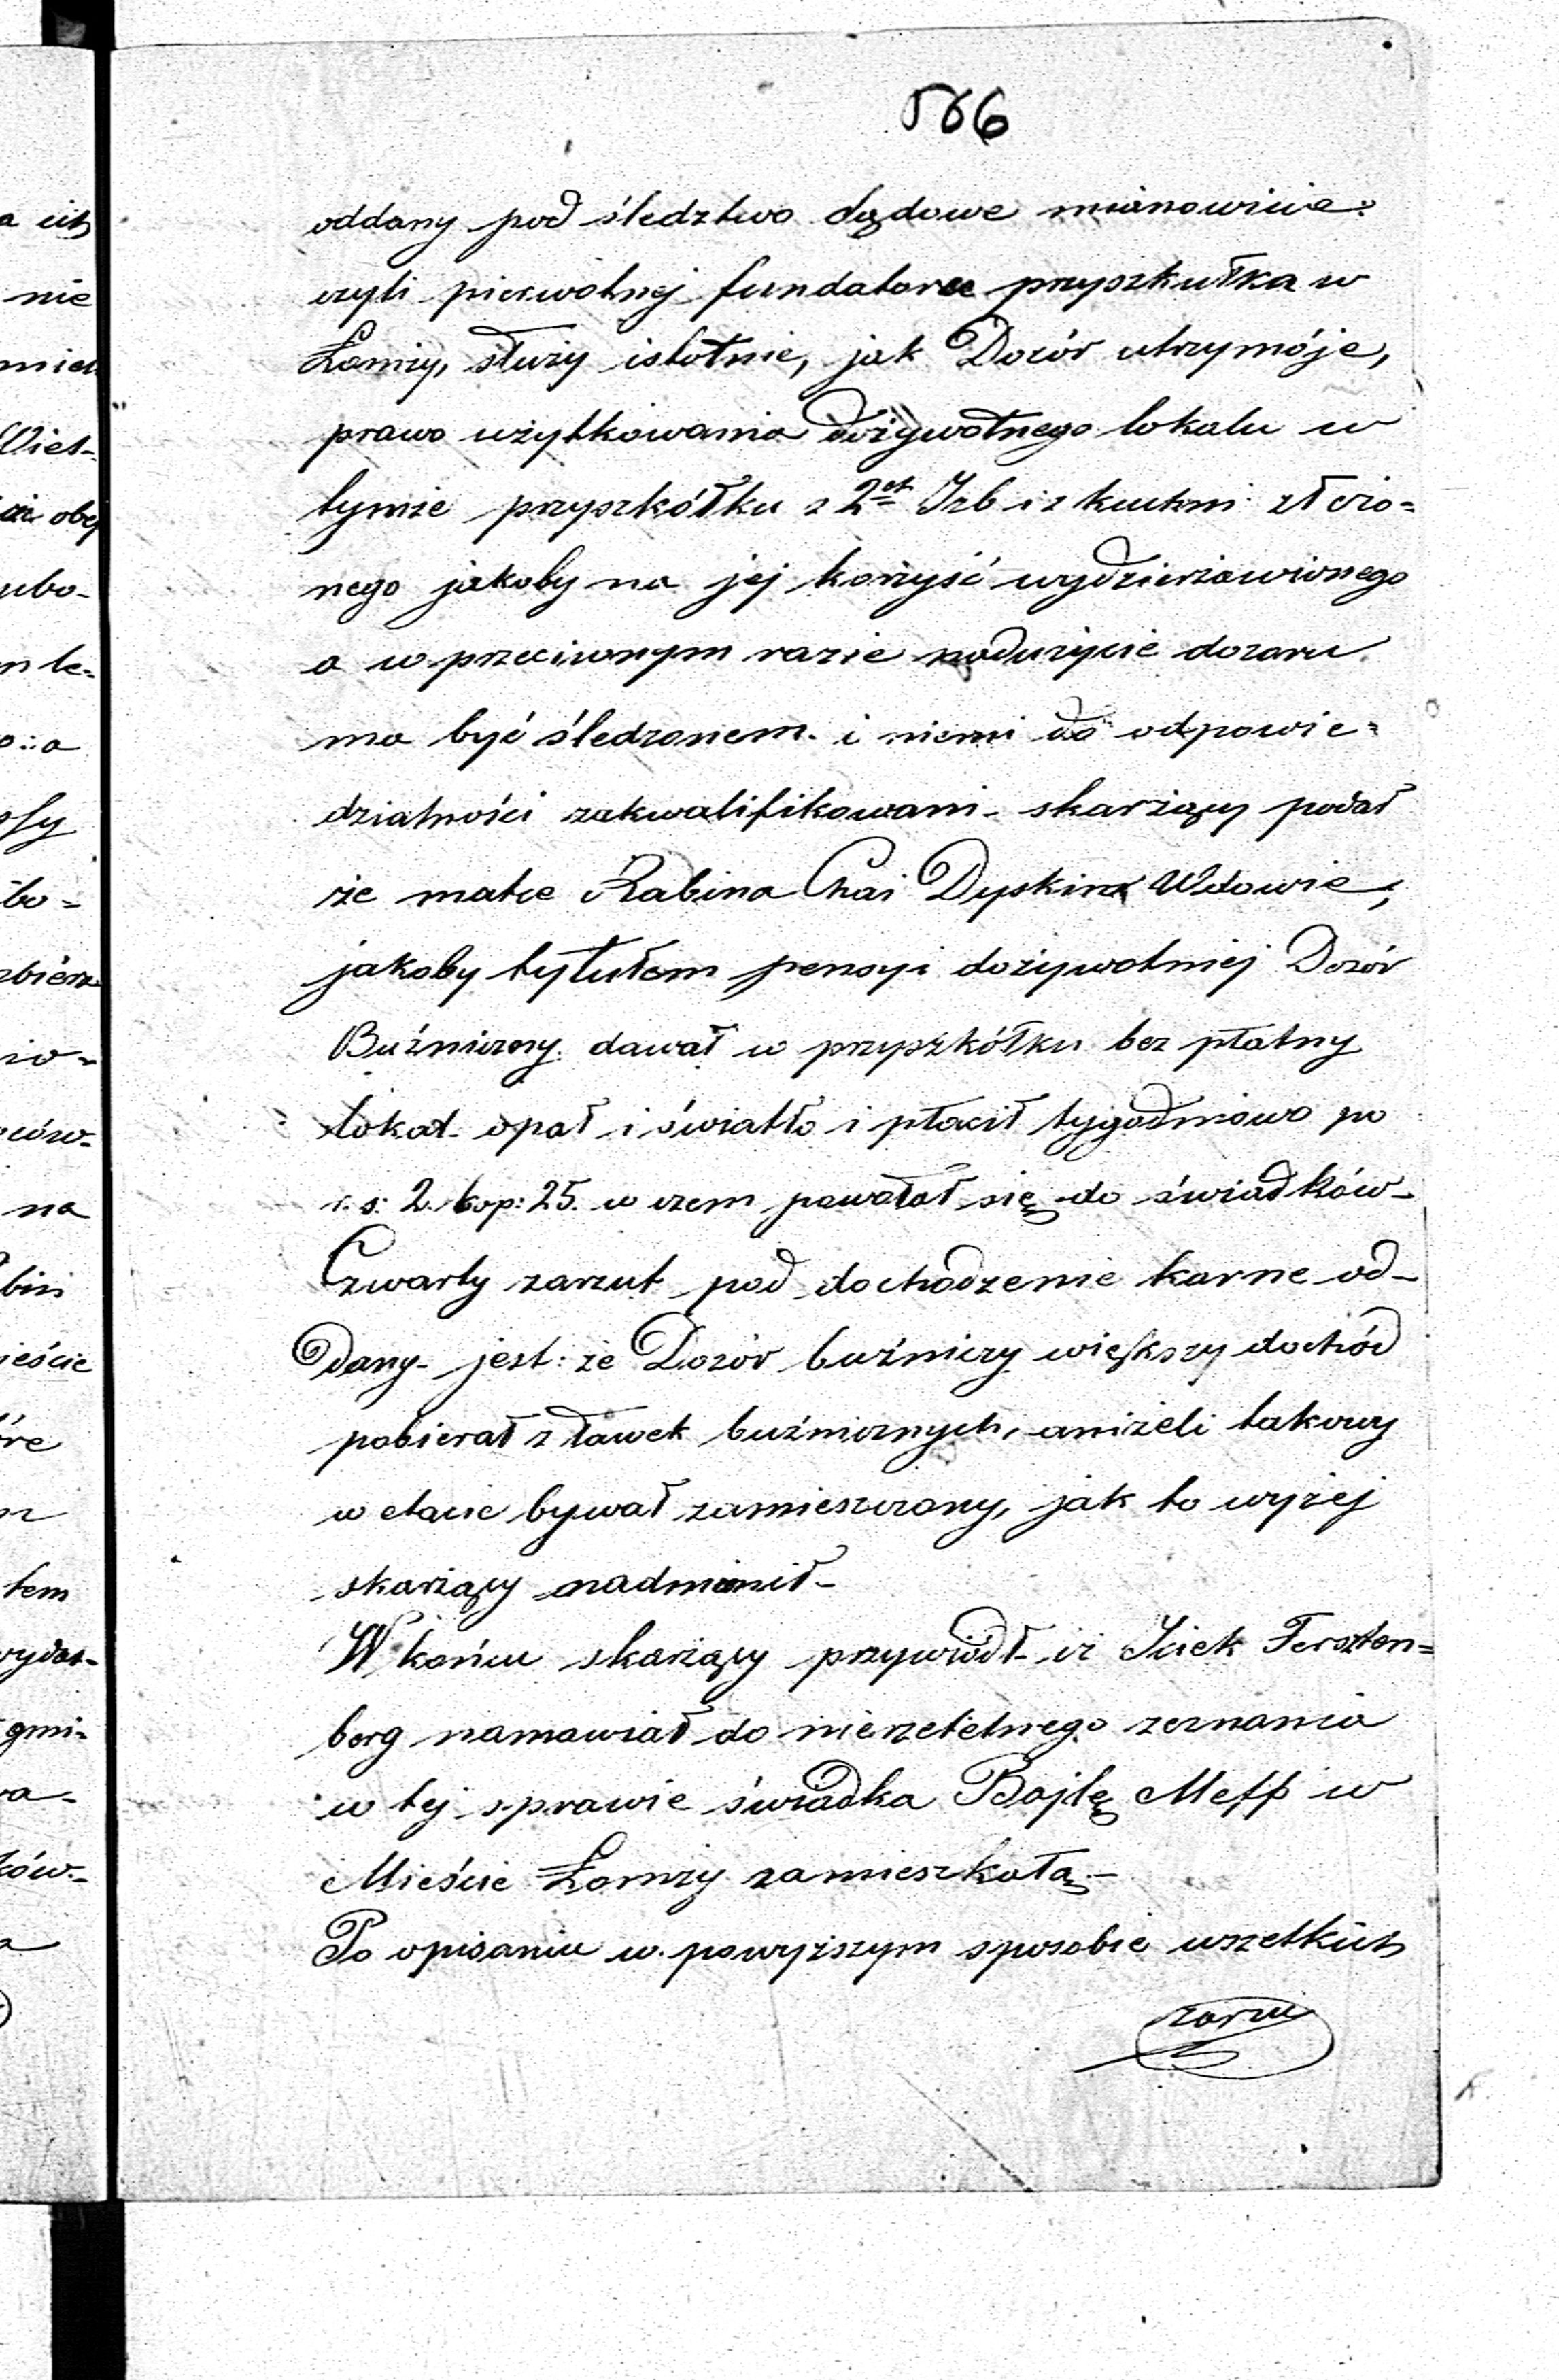 566
oddany pod śledztwo sądowe mianowicie:
czyli pierwotnej fundatorce przyszkułka w
Łomży, służy istotnie, jak Dozór utrzymóje,
prawo użytkowania dożywotnego lokalu w
tymże przyszkółku z 2ch Izb i z kuchni złożo=
nego jakoby na jej korzyść wydzierżawionego
a w przeciwnym razie nadużycie dozoru
ma być śledzonem. i niemi do odpowie=
dzialności zakwalifikowani - skarżący podał
że matce Rabina Chai Dyskin Wdowie,
jakoby tytułem pensyi dożywotniej Dozór
Bużniczny. dawał w przyszkółku bez płatny
lokal - opał i światło i płacił tygodniowo po
r. s: 2. kop: 25. w czem powołał się do świadków -
Czwarty zarzut pod dochodzenie karne od-
dany - jest: że Dozór bużniczy większy dochód
pobierał z ławek bużnicznych, aniżeli takowy
w etacie bywał zamieszczony, jak to wyżej
skarżący nadmienił -
W końcu skarżący przywiódł - iż Icek Fersten=
berg namawiał do nierzetelnego zeznania
w tej sprawie świadka Bajlę Meff w
Mieście Łomży zamieszkałą. -
Po opisaniu w powyższym sposobie wszelkich
zarzu
a ich
nie
ubo-
na
ieście
tem
gmi=